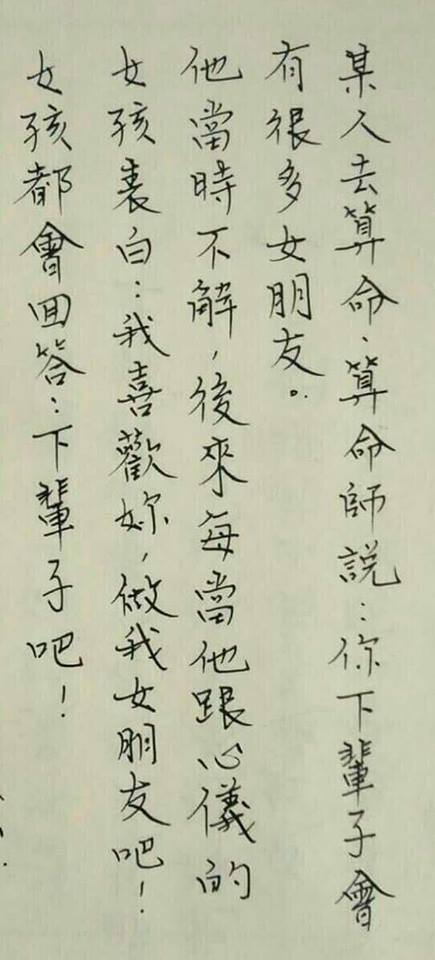 某人去算命、算命師説：你下輩子會
有很多女朋友。
他當時不解，後來每當他跟心儀的
女孩表白：我喜歡妳，做我女朋友吧！
女孩都會回答：下輩子吧！